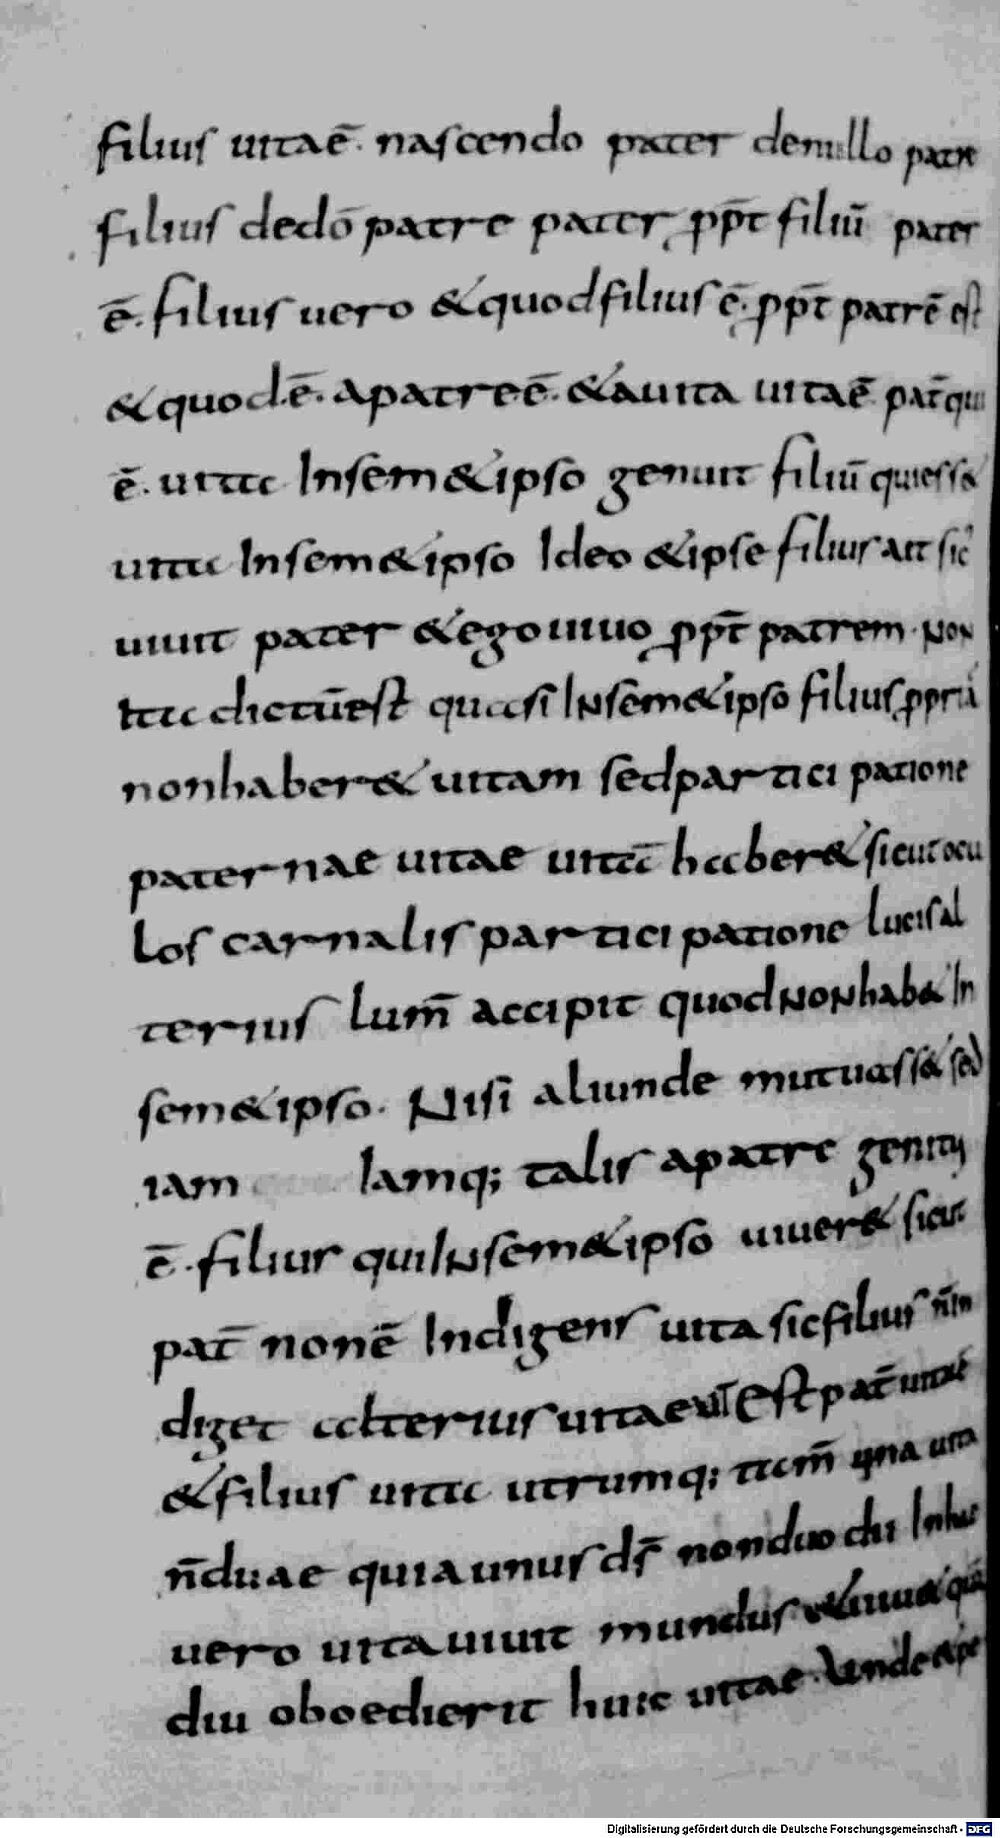 filius uita ē. nascendo pater de nullo patre
filius dedō patre pater ppt̄ filiū pater
ē. filius uero & quod filius ē. ppt̄ patrē est
& quod ē. a patre ē. & a uita uita ē. pat̄ qui
ē. uita In sem&ipso genuit filiū qui ess&
uita In sem&ipso Ideo & ipse filius ait sic
uiuit pater & ego uiuo ppt̄ patrem. Non
ita dictū est quasi In sem&ipso filius ppriā
non haber& uitam sed participatione
paternae uitae uitā haber& sicut ocu
los carnalis participatione lucis al
terius lum̄ accipit quod non hab& In
sem&ipso. Nisi aliunde mutuass& sed
iam Iamq; talis a patre genitus
ē. filius qui In sem&ipso uiuer& sicut
pat̄ non ē Indigens uita sic filius n̄ In
diget alterius uitae Est pat̄ uita
& filius uita utrumq; tam̄ una uita
n̄ duae quia unus ds̄ non duo dii In hac
uero uita uiuit mundus & uiu&
diu oboedierit huic uitae. Unde